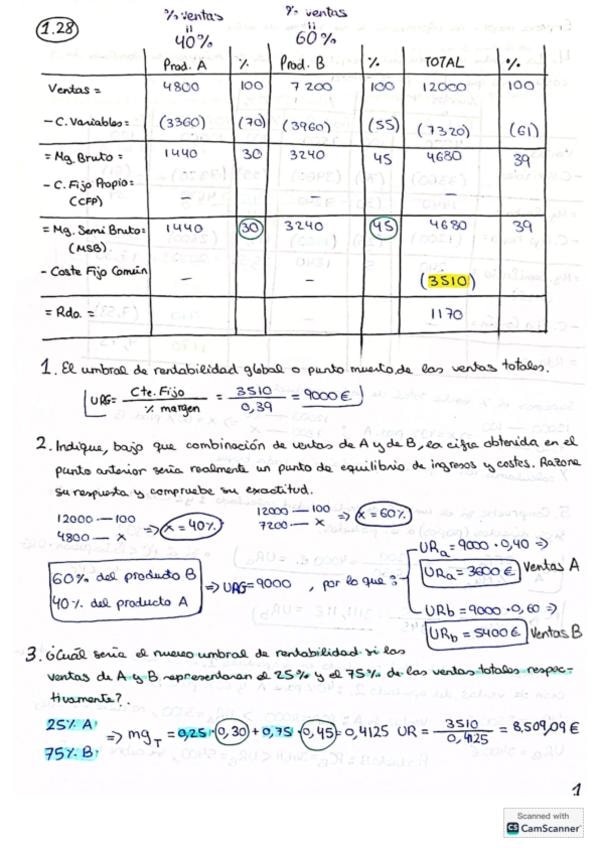 1.28
% ventas
=
40%
% ventas
=
60%
Prod. A % Prod. B % TOTAL %
Ventas = 4800 100 7200 100 12000 100
- C. Variables = (3360) (70) (3960) (55) (7320) (61)
= Mg Bruto = 1440 30 3240 45 4680 39
- C. Fijo Propio = (CFP) - -
= Mg. Semi Bruto = (MSB) 1440 30 3240 45 4680 39
- Coste Fijo Común - - (3510)
= Rdo. = 1170
1. El umbral de rentabilidad global o punto muerto de las ventas totales.
URG = Cte. Fijo / % margen = 3510 / 0,39 = 9000 €
2. Indique, bajo que combinación de ventas de A y de B, la cifra obtenida en el
punto anterior sería realmente un punto de equilibrio de ingresos y costes. Razone
su respuesta y compruebe su exactitud.
12000 — 100
4800 — x => x = 40%
12000 — 100
7200 — x => x = 60%
60% del producto B
40% del producto A
=> URG = 9000 , por lo que :
URa = 9000 · 0,40 =>
URa = 3600 € Ventas A
URb = 9000 · 0,60 =>
URb = 5400 € Ventas B
3. ¿Cuál sería el nuevo umbral de rentabilidad si las
ventas de A y B representaran el 25% y el 75% de las ventas totales respec-
tivamente?.
25% A
75% B
=> mg T = 0,25 · 0,30 + 0,75 · 0,45 = 0,4125 UR = 3510 / 0,4125 = 8,509,09 €
1
Scanned with
CS CamScanner